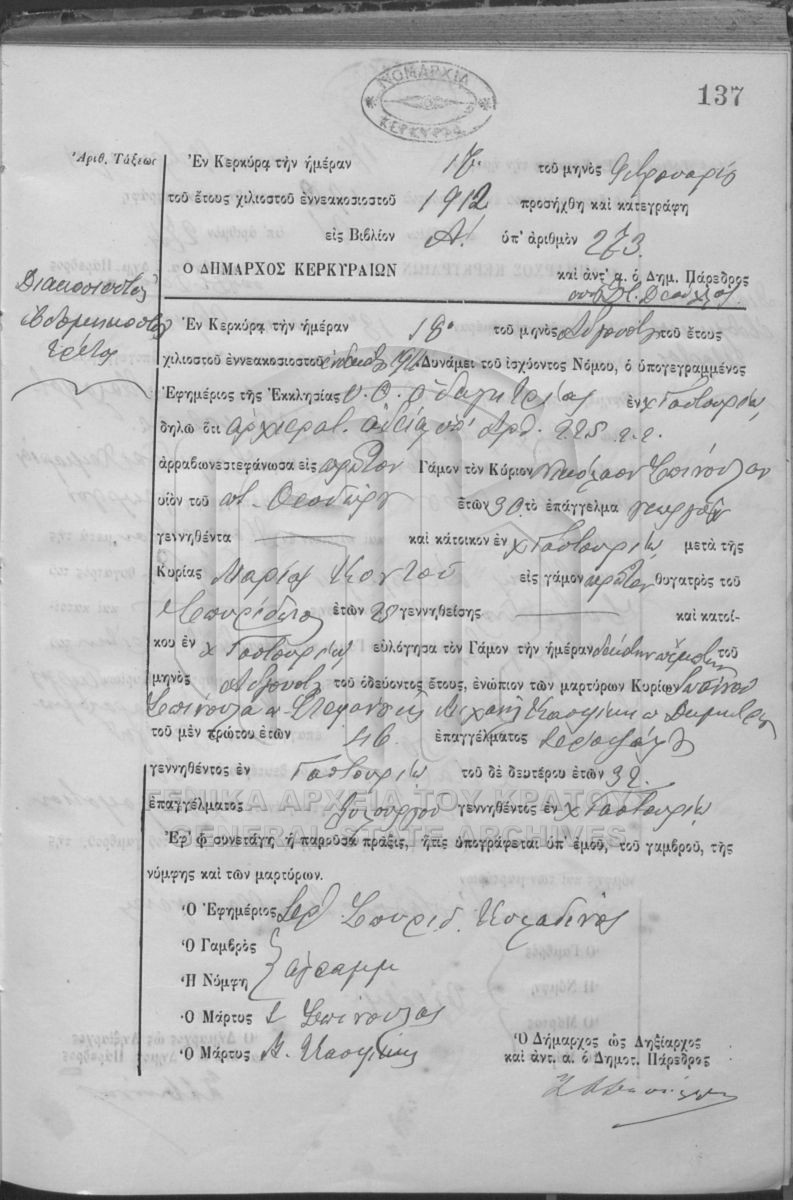 ΝΟΜΑΡΧΙΑ
ΚΕΡΚΥΡΑΣ
137
Ἀριθ. Τάξεως
Ἐν Κερκύρᾳ τὴν ἡμέραν 18 τοῦ μηνὸς
τοῦ ἔτους χιλιοστοῦ ἐννεακοσιοστοῦ 1912 προσήχθη καὶ κατεγράφη
εἰς Βιβλίον Α' ὑπ' ἀριθμὸν 273.
Ο ΔΗΜΑΡΧΟΣ ΚΕΡΚΥΡΑΙΩΝ καὶ ἀντ' α. ὁ Δημ. Πάρεδρος
Διακοσιοστὸς
ἑβδομηκοστὸς
τρίτος
Ἐν Κερκύρᾳ τὴν ἡμέραν 18 τοῦ μηνὸς Αὐγούστου τοῦ ἔτους
χιλιοστοῦ ἐννεακοσιοστοῦ Δυνάμει τοῦ ἰσχύοντος Νόμου, ὁ ὑπογεγραμμένος
Ἐφημέριος τῆς Ἐκκλησίας Υ. Θ. Ὁδηγητρίας ἐν χ Γαστουρίῳ
δηλῶ ὅτι ἀρχιερατ. ἀδείᾳ ὑπ' ἀρθ. 225
ἀρραβωνεστεφάνωσα εἰς πρῶτον Γάμον τὸν Κύριον Νικόλαον Σπίνουλαν
υἱὸν τοῦ Θεοδώρου ἐτῶν 30 τὸ ἐπάγγελμα γεωργὸν
γεννηθέντα καὶ κάτοικον ἐν χ Γαστουρίῳ μετὰ τῆς
Κυρίας Μαρίας Κοντοῦ εἰς γάμον πρῶτον θυγατρὸς τοῦ
Σπυρίδωνος ἐτῶν 28 γεννηθείσης καὶ κατοί-
κου ἐν χ Γαστουρίῳ εὐλόγησα τὸν Γάμον τὴν ἡμέραν δεκάτην πέμπτην τοῦ
μηνὸς Αὐγούστου τοῦ ὁδεύοντος ἔτους, ἐνώπιον τῶν μαρτύρων Κυρίων
Σπίνουλα Μιχαὴλ Δημητρίου
τοῦ μὲν πρώτου ἐτῶν 46 ἐπαγγέλματος
γεννηθέντος ἐν Γαστουρίῳ τοῦ δὲ δευτέρου ἐτῶν 32
ἐπαγγέλματος ξυλουργοῦ γεννηθέντος ἐν χ Γαστουρίῳ
ΓΕΝΙΚΑ ΑΡΧΕΙΑ ΤΟΥ ΚΡΑΤΟΥΣ
GENERAL STATE ARCHIVES
Ἐφ' ᾧ συνετάγη ἡ παροῦσα πρᾶξις, ἥτις ὑπογράφεται ὑπ' ἐμοῦ, τοῦ γαμβροῦ, τῆς
νύμφης καὶ τῶν μαρτύρων.
Ὁ Ἐφημέριος Σπυρίδ.
Ὁ Γαμβρὸς
Ἡ Νύμφη ἀγράμμ
Ὁ Μάρτυς Σ Σπίνουλας
Ὁ Μάρτυς Μ.
Ὁ Δήμαρχος ὡς Ληξίαρχος
καὶ ἀντ. α. ὁ Δημοτ. Πάρεδρος